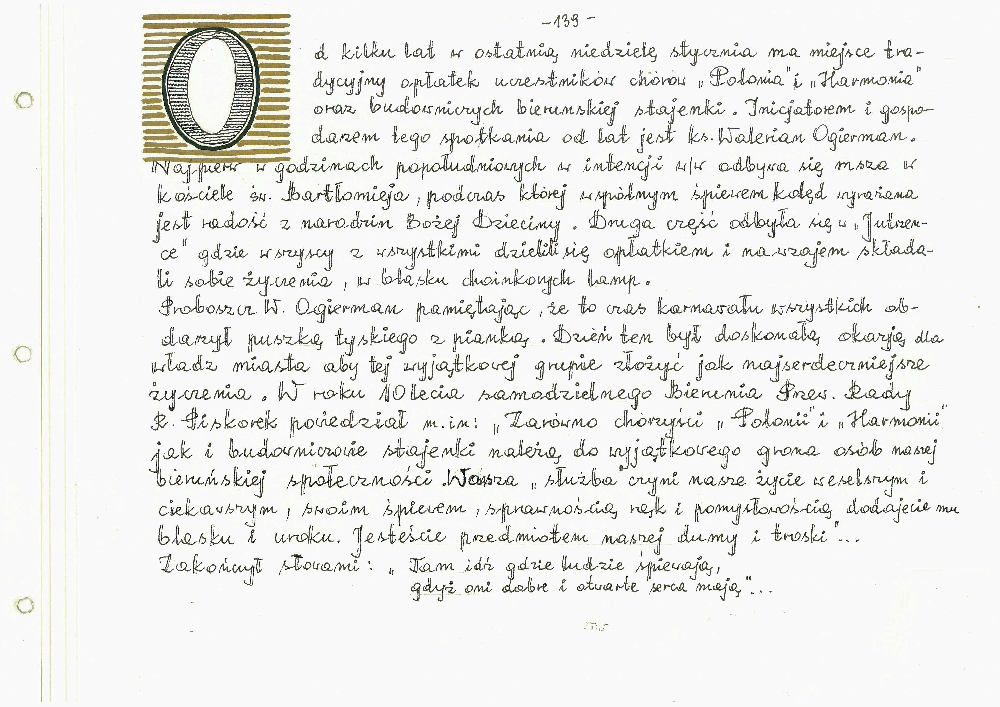 -139-
Od kilku lat w ostatnią niedzielę stycznia ma miejsce tra-
dycyjny opłatek uczestników chórów „Polonia" i „Harmonia"
oraz budowniczych bieruńskiej stajenki. Inicjatorem i gospo-
darzem tego spotkania od lat jest ks. Walerian Ogierman.
Najpierw w godzinach popołudniowych w intencji w/w odbywa się msza w
kościele św. Bartłomieja, podczas której wspólnym śpiewem kolęd wyrażana
jest radość z narodzin Bożej Dzieciny. Druga część odbyła się w „Jutrzen-
ce" gdzie wszyscy z wszystkimi dzielili się opłatkiem i nawzajem składa-
li sobie życzenia, w blasku choinkowych lamp.
Proboszcz W. Ogierman pamiętając, że to czas karnawału wszystkich ob-
darzył puszką tyskiego z pianką. Dzień ten był doskonałą okazją dla
władz miasta aby tej wyjątkowej grupie złożyć jak najserdeczniejsze
życzenia. W roku 10lecia samodzielnego Bierunia Przew. Rady
R. Piskorek powiedział m.in: „Zarówno chórzyści „Polonii" i „Harmonii"
jak i budowniczowie stajenki należą do wyjątkowego grona osób naszej
bieruńskiej społeczności. Wasza „służba" czyni nasze życie weselszym i
ciekawszym, swoim śpiewem, sprawnością rąk i pomysłowością dodajecie mu
blasku i uroku. Jesteście przedmiotem naszej dumy i troski"...
Zakończył słowami: „Tam idź gdzie ludzie śpiewają,
gdyż oni dobre i otwarte serca mają"...